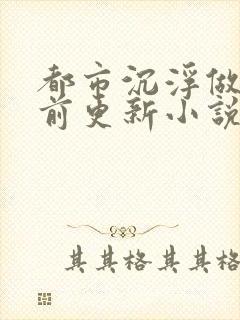 都市沉浮做
前更新小説
其其格其其格